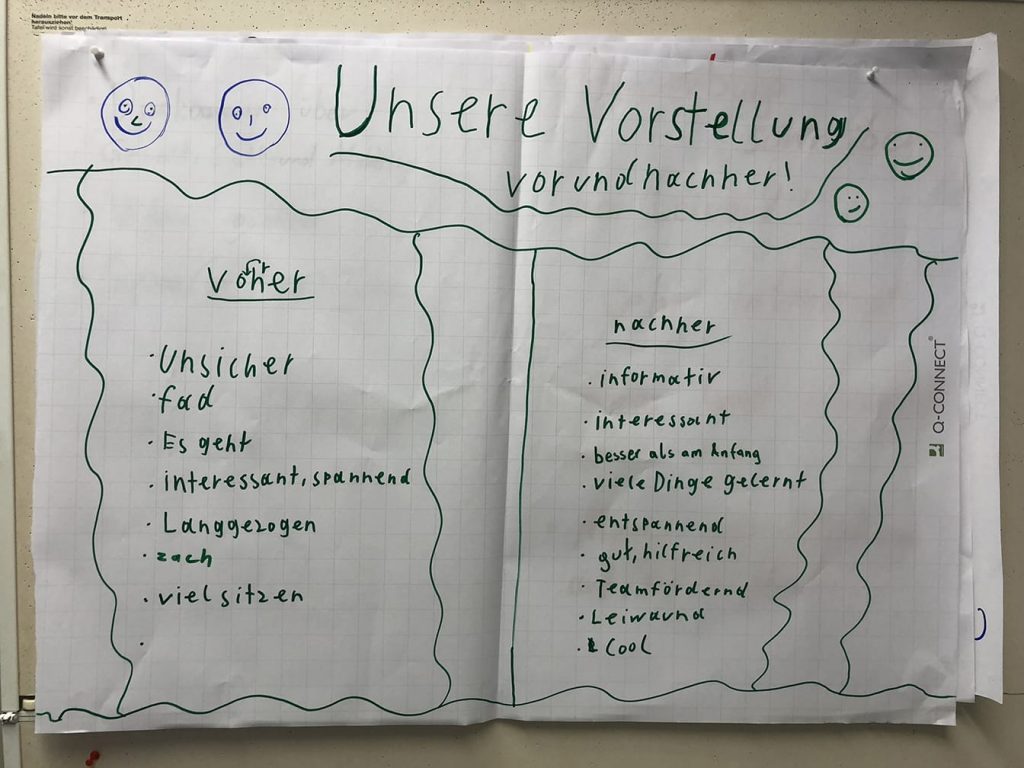 Nadeln bitte vor dem Transport
herausziehen!
Tafel wird sonst beschädigt.
Unsere Vorstellung
vor und nachher!
Vorher
· Unsicher
· fad
· Es geht
· interessant, spannend
· Langgezogen
· zach
· viel sitzen
·
nachher
· informativ
· interessant
· besser als am Anfang
· viele Dinge gelernt
· entspannend
· gut, hilfreich
· Teamfördernd
· Leiwaund
· Cool
Q-CONNECT®